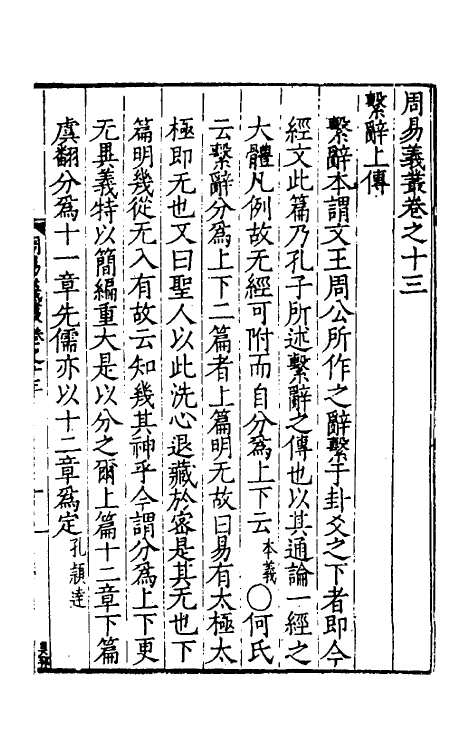 周易義叢卷之十三
繫辭上傳
繫辭本謂文王周公所作之辭繫于卦爻之下者即今
經文此篇乃孔子所述繫辭之傳也以其通論一經之
大體凡例故无經可附而自分爲上下云本義〇何氏
云繫辭分爲上下二篇者上篇明无故曰易有太極太
極即无也又曰聖人以此洗心退藏於宻是其无也下
篇明幾從无入有故云知幾其神乎今謂分爲上下更
无異義特以簡編重大是以分之爾上篇十二章下篇
虞翻分爲十一章先儒亦以十二章爲定孔頴逹